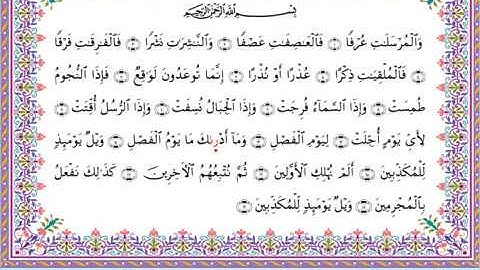 بِسْمِ اللَّهِ الرَّحْمَٰنِ الرَّحِيمِ
وَٱلْمُرْسَلَٰتِ عُرْفًا ۝ فَٱلْعَٰصِفَٰتِ عَصْفًا ۝ وَٱلنَّٰشِرَٰتِ نَشْرًا ۝ فَٱلْفَٰرِقَٰتِ فَرْقًا
۝ فَٱلْمُلْقِيَٰتِ ذِكْرًا ۝ عُذْرًا أَوْ نُذْرًا ۝ إِنَّمَا تُوعَدُونَ لَوَٰقِعٌ ۝ فَإِذَا ٱلنُّجُومُ
طُمِسَتْ ۝ وَإِذَا ٱلسَّمَآءُ فُرِجَتْ ۝ وَإِذَا ٱلْجِبَالُ نُسِفَتْ ۝ وَإِذَا ٱلرُّسُلُ أُقِّتَتْ ۝
لِأَىِّ يَوْمٍ أُجِّلَتْ ۝ لِيَوْمِ ٱلْفَصْلِ ۝ وَمَآ أَدْرَىٰكَ مَا يَوْمُ ٱلْفَصْلِ ۝ وَيْلٌ يَوْمَئِذٍ
لِّلْمُكَذِّبِينَ ۝ أَلَمْ نُهْلِكِ ٱلْأَوَّلِينَ ۝ ثُمَّ نُتْبِعُهُمُ ٱلْءَاخِرِينَ ۝ كَذَٰلِكَ نَفْعَلُ
بِٱلْمُجْرِمِينَ ۝ وَيْلٌ يَوْمَئِذٍ لِّلْمُكَذِّبِينَ ۝